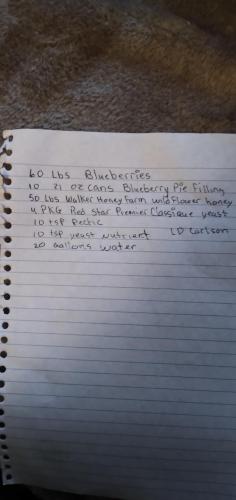 60 Lbs Blueberries
10 21 oz cans Blueberry Pie filling
50 Lbs Walker Honey farm wildflower honey
4 PKG Red Star Premier Classique yeast
10 tsp Pectic
10 tsp yeast nutrient LD Carlson
20 Gallons Water